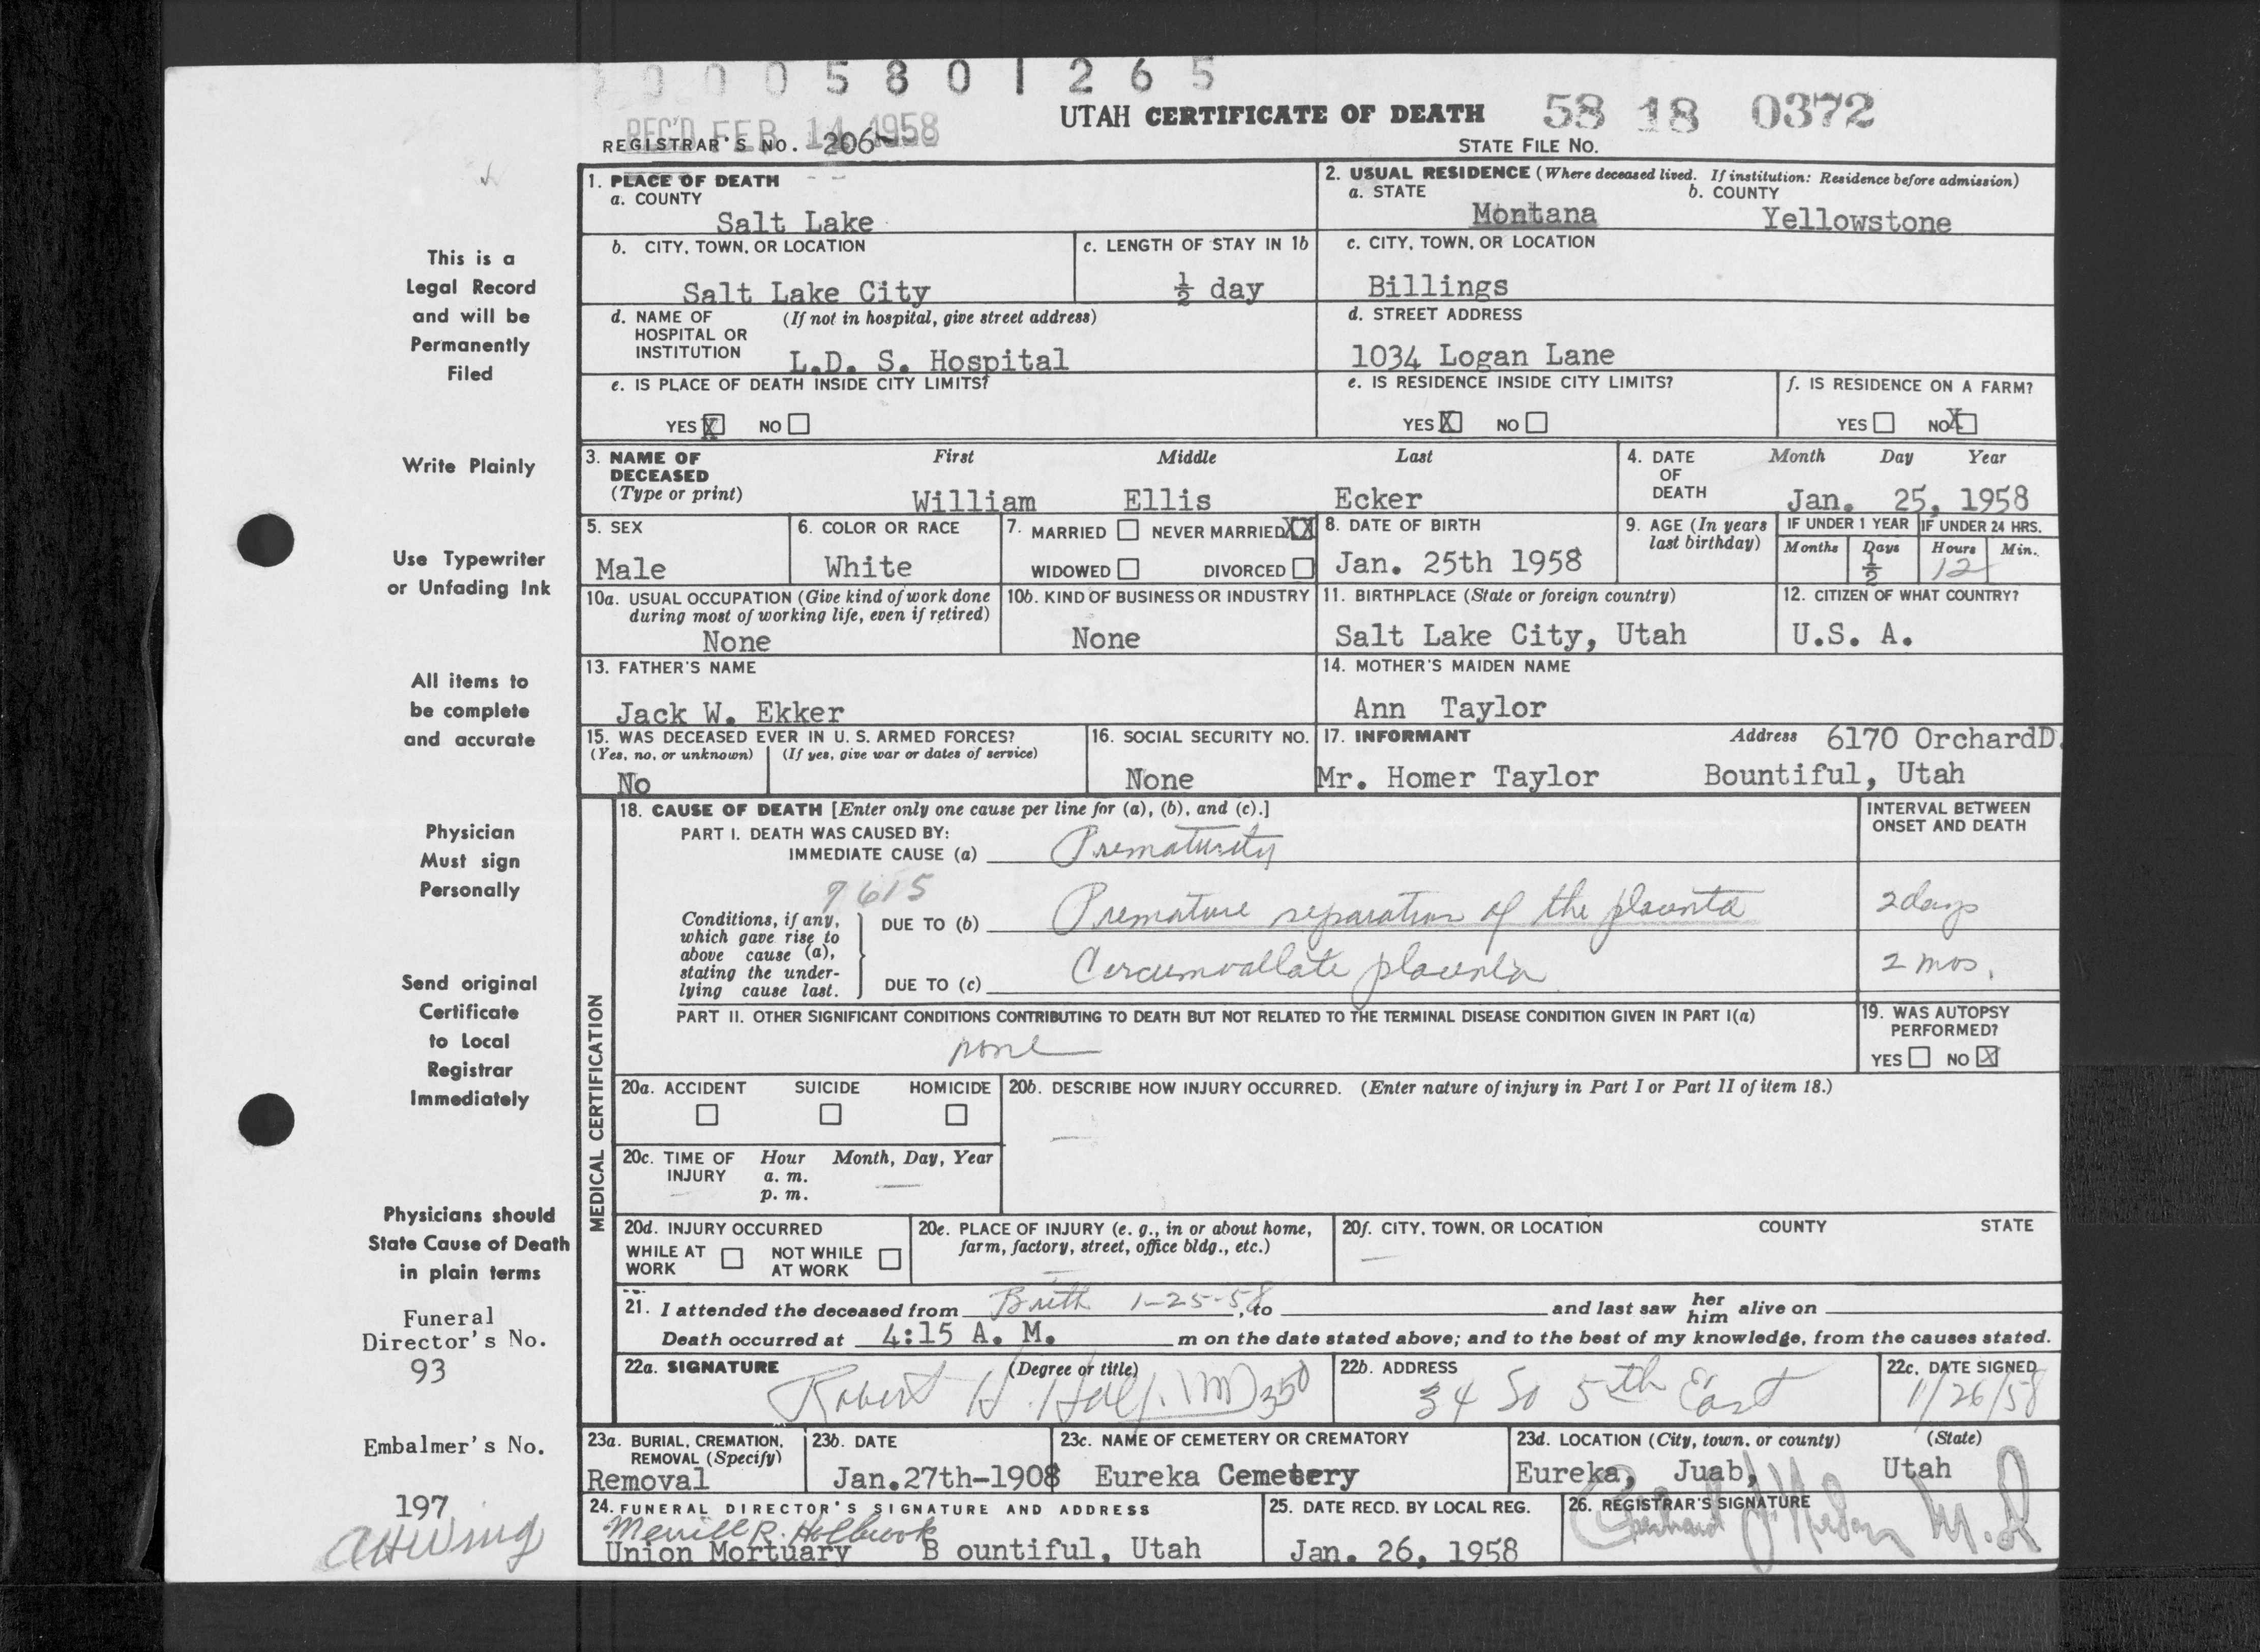 0 0 0 5 8 0 1 2 6 5
UTAH CERTIFICATE OF DEATH 58 18 0372
REC'D FEB 14 1958
REGISTRAR'S NO. 206 STATE FILE NO.
1. PLACE OF DEATH
a. COUNTY
Salt Lake
2. USUAL RESIDENCE (Where deceased lived. If institution: Residence before admission)
a. STATE b. COUNTY
Montana Yellowstone
b. CITY, TOWN, OR LOCATION
Salt Lake City
c. LENGTH OF STAY IN 1b
½ day
c. CITY, TOWN, OR LOCATION
Billings
d. NAME OF (If not in hospital, give street address)
HOSPITAL OR
INSTITUTION
L.D. S. Hospital
d. STREET ADDRESS
1034 Logan Lane
e. IS PLACE OF DEATH INSIDE CITY LIMITS?
YES X NO
e. IS RESIDENCE INSIDE CITY LIMITS?
YES X NO
f. IS RESIDENCE ON A FARM?
YES NO X
3. NAME OF First Middle Last
DECEASED
(Type or print)
William Ellis Ecker
4. DATE Month Day Year
OF
DEATH
Jan. 25, 1958
5. SEX
Male
6. COLOR OR RACE
White
7. MARRIED NEVER MARRIED XX
WIDOWED DIVORCED
8. DATE OF BIRTH
Jan. 25th 1958
9. AGE (In years
last birthday)
IF UNDER 1 YEAR IF UNDER 24 HRS.
Months Days Hours Min.
½ 12
10a. USUAL OCCUPATION (Give kind of work done
during most of working life, even if retired)
None
10b. KIND OF BUSINESS OR INDUSTRY
None
11. BIRTHPLACE (State or foreign country)
Salt Lake City, Utah
12. CITIZEN OF WHAT COUNTRY?
U.S. A.
13. FATHER'S NAME
Jack W. Ekker
14. MOTHER'S MAIDEN NAME
Ann Taylor
15. WAS DECEASED EVER IN U. S. ARMED FORCES?
(Yes, no, or unknown) (If yes, give war or dates of service)
No
16. SOCIAL SECURITY NO.
None
17. INFORMANT Address 6170 OrchardD.
Mr. Homer Taylor Bountiful, Utah
MEDICAL CERTIFICATION
18. CAUSE OF DEATH [Enter only one cause per line for (a), (b), and (c).]
INTERVAL BETWEEN
ONSET AND DEATH
PART I. DEATH WAS CAUSED BY:
IMMEDIATE CAUSE (a) Prematurity
7615
Conditions, if any,
which gave rise to
above cause (a),
stating the under-
lying cause last.
DUE TO (b) Premature separation of the placenta 2 days
DUE TO (c) Circumvallate placenta 2 mos.
PART II. OTHER SIGNIFICANT CONDITIONS CONTRIBUTING TO DEATH BUT NOT RELATED TO THE TERMINAL DISEASE CONDITION GIVEN IN PART I(a)
none
19. WAS AUTOPSY
PERFORMED?
YES NO X
20a. ACCIDENT SUICIDE HOMICIDE
20b. DESCRIBE HOW INJURY OCCURRED. (Enter nature of injury in Part I or Part II of item 18.)
20c. TIME OF Hour Month, Day, Year
INJURY a. m.
p. m.
20d. INJURY OCCURRED
WHILE AT NOT WHILE
WORK AT WORK
20e. PLACE OF INJURY (e. g., in or about home,
farm, factory, street, office bldg., etc.)
20f. CITY, TOWN, OR LOCATION COUNTY STATE
21. I attended the deceased from Birth 1-25-58, to and last saw her him alive on
Death occurred at 4:15 A. M. m on the date stated above; and to the best of my knowledge, from the causes stated.
22a. SIGNATURE (Degree or title)
Robert H. MD 350
22b. ADDRESS
34 So 5th East
22c. DATE SIGNED
1/26/58
23a. BURIAL, CREMATION,
REMOVAL (Specify)
Removal
23b. DATE
Jan.27th-1908
23c. NAME OF CEMETERY OR CREMATORY
Eureka Cemetery
23d. LOCATION (City, town, or county) (State)
Eureka, Juab, Utah
24. FUNERAL DIRECTOR'S SIGNATURE AND ADDRESS
Merrill R. Holbrook
Union Mortuary B ountiful, Utah
25. DATE RECD. BY LOCAL REG.
Jan. 26, 1958
26. REGISTRAR'S SIGNATURE
M.D
This is a
Legal Record
and will be
Permanently
Filed
Write Plainly
Use Typewriter
or Unfading Ink
All items to
be complete
and accurate
Physician
Must sign
Personally
Send original
Certificate
to Local
Registrar
Immediately
Physicians should
State Cause of Death
in plain terms
Funeral
Director's No.
93
Embalmer's No.
197